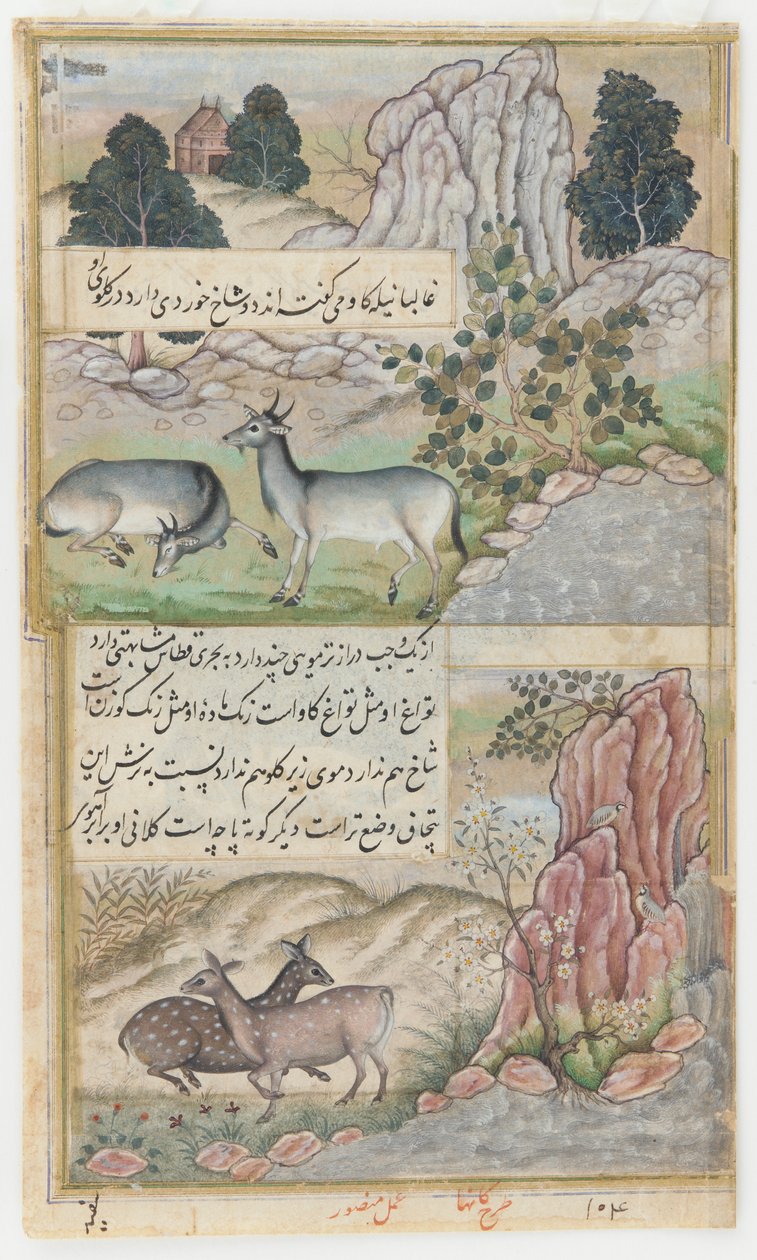 غالبا نیله کاو می کفته اند دو شاخ خوردی دارد در کلوی او
از یک وجب درازتر مویی چند دارد به بحری قطاس مشابهتی دارد
تواغ او مثل تواغ کاو است رنک ماده او مثل رنک کوزن است
شاخ هم ندارد موی زیر کلو هم ندارد نسبت به نرش این
وضع تر است دیکر کوته پاچه است کلانی او برابر آهوی
طرح کانها عمل منصور